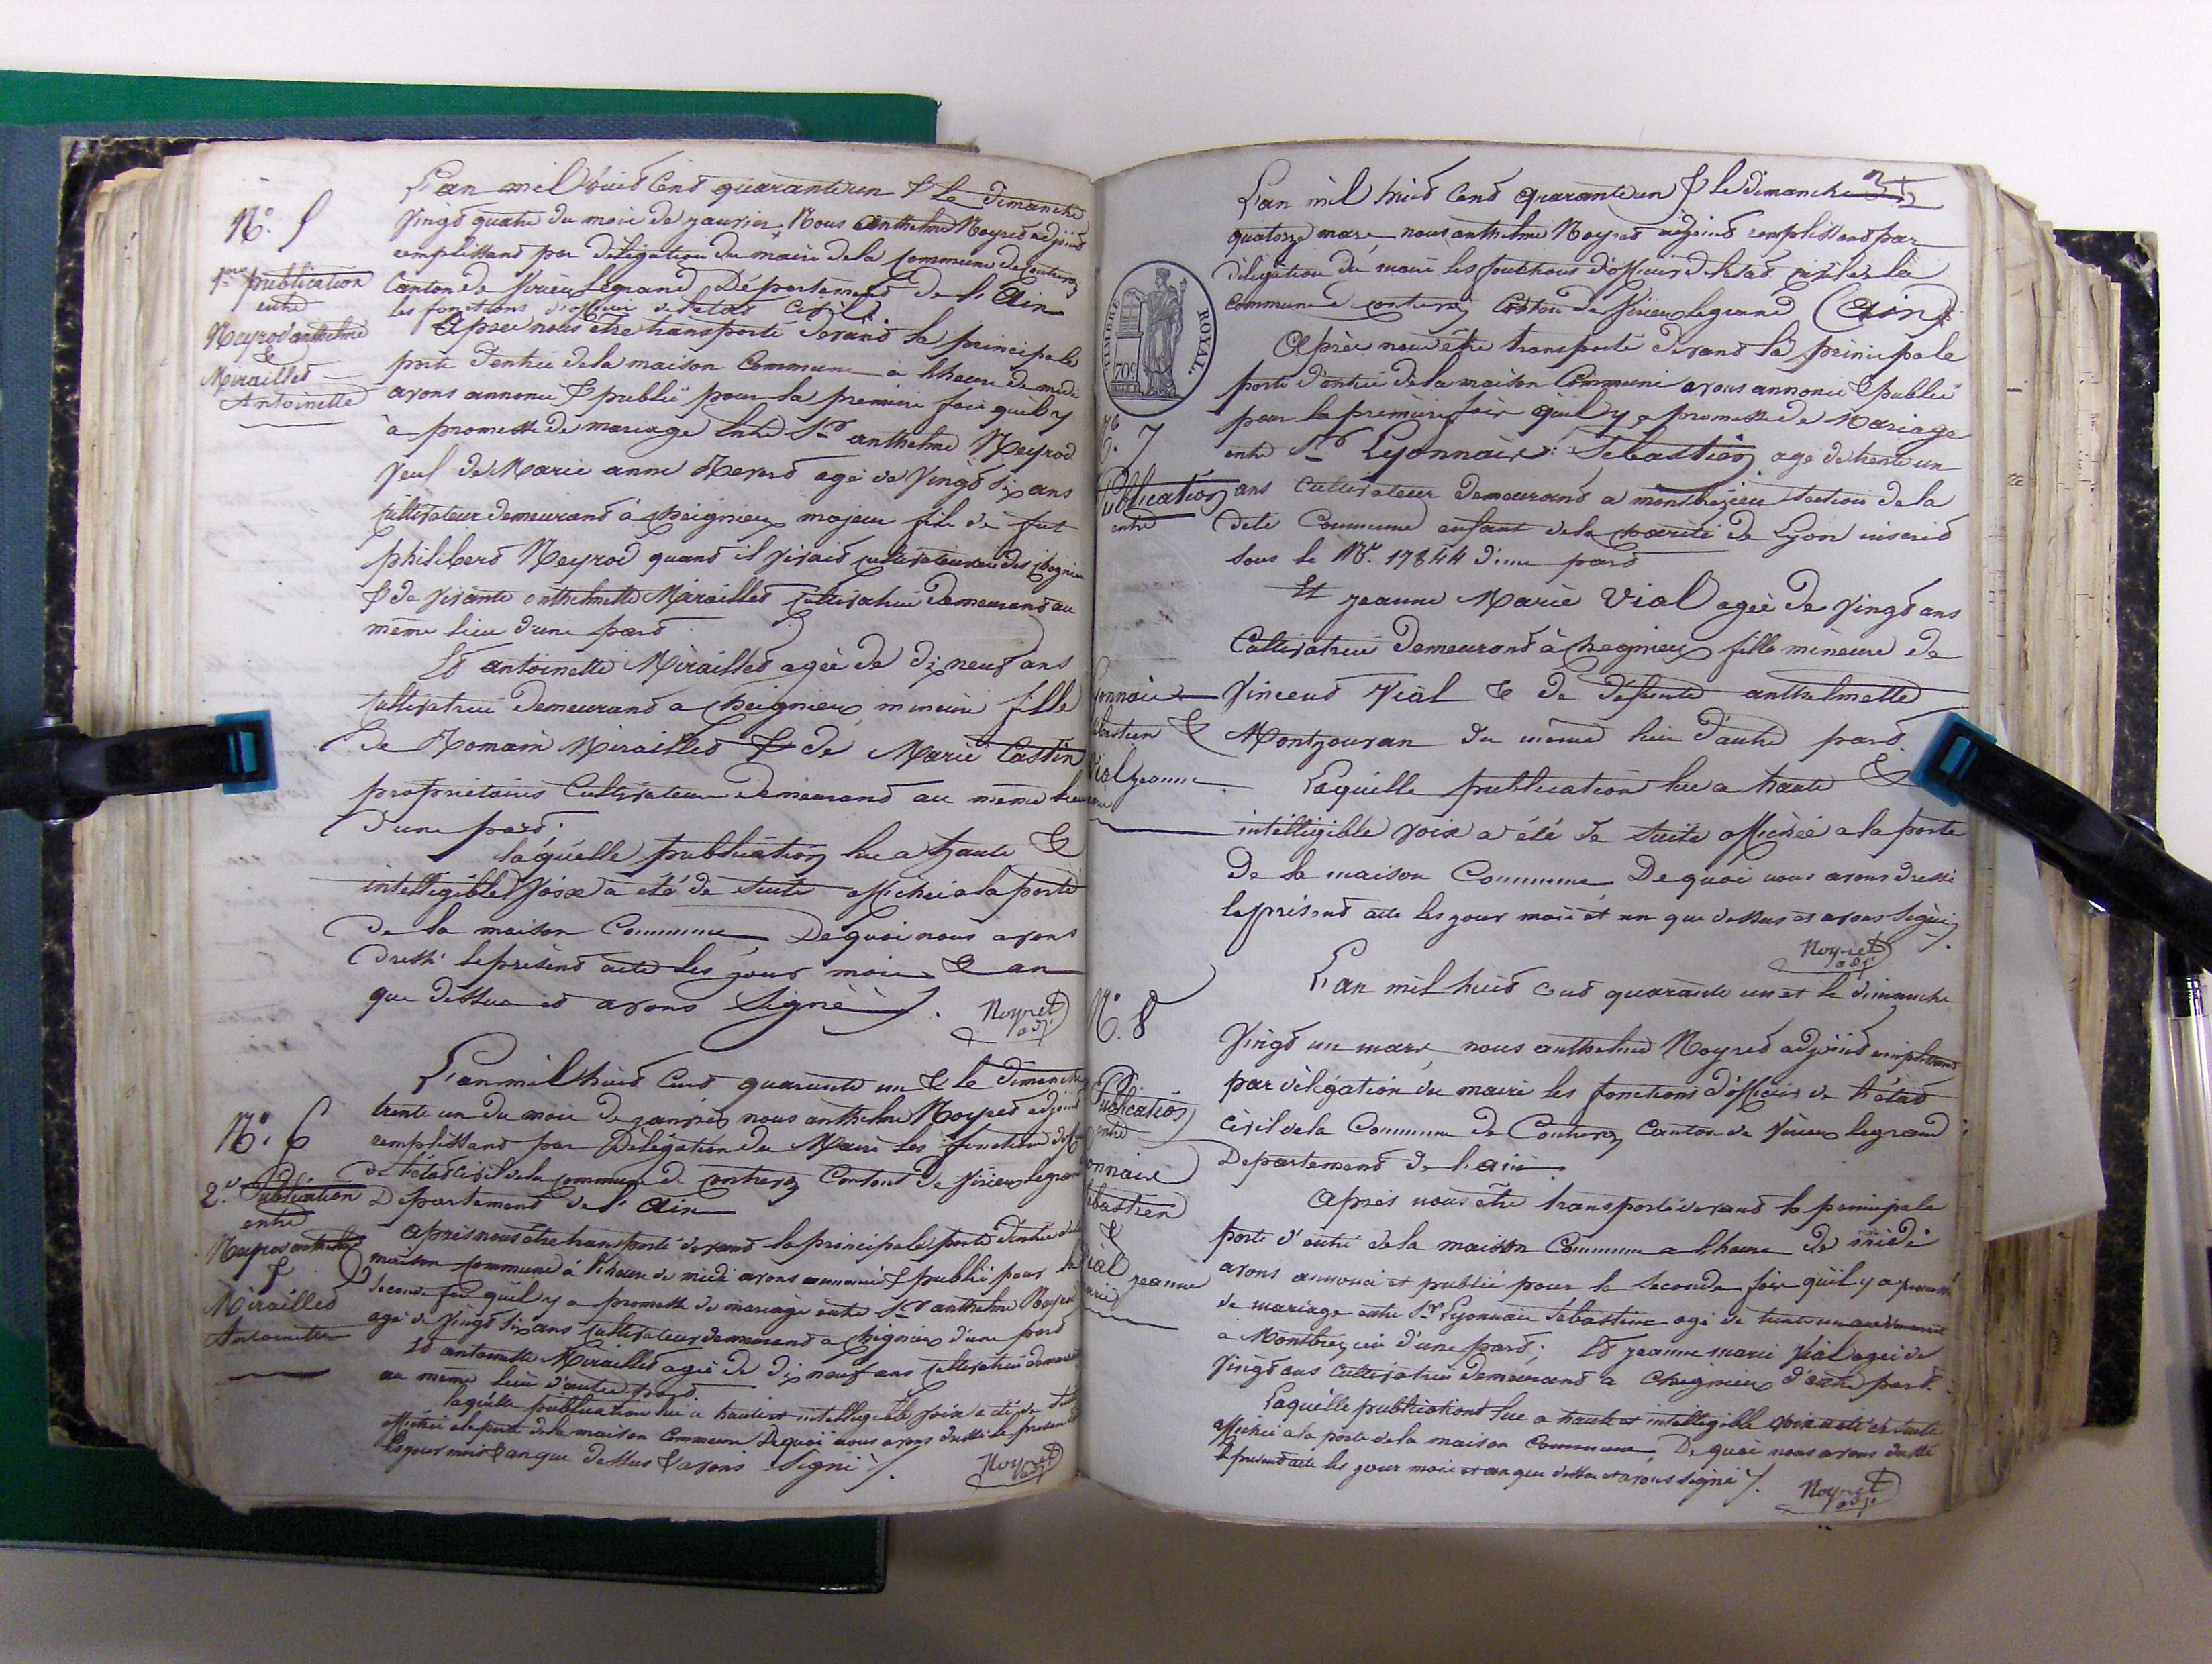 N°. 5
1ere publication
entre
Neyrod anthelme
&
Mirailled
Antoinette
L'an mil huid cend quarante un & le dimanche
vingd quatre du mois de janvier, Nous anthelme Noyred adjoind
remplissand par délégation du maire de la commune de
Canton de Virieu legrand Departemend de l'Ain
les fonctions d'officier de l'etad Civil.
Après nous être transporté devand la principale
porte d'entrée de la maison Commune a l'heure de midi
avons annoncé & publié pour la premiere fois qu'il y
à promesse de mariage entre Sr anthelme Neyrod
veuf de Marie anne agé de vingd six ans
cultivateur demeurand à cheignieu majeur fils de fut
philiberd Neyrod quand il vivaid cultivateur
& de vivante anthelmette Mirailled cultivatrice demeurand au
même lieu d'une pard
Ed antoinette Mirailled agée de dix neuf ans
cultivatrice demeurand a cheignieu mineure fille
de Romain Mirailled & de Marie Castin
propriétaires Cultivateurs demeurand au même lieu
d'une pard.
laquelle publication lue a haute &
intelligible voix a été de suite affichée a la porte
de la maison Commune De quoi nous avons
dressé le présend acte les jour mois & an
que dessus ed avons signé.
Noyret
adjt
N°. 6
2e. Publication
entre
Neyrod anthelme
&
Mirailled
Antoinette
L'an mil huid cend quarante un & le dimanche
trente un du mois de janvier nous anthelme Noyred adjoind
remplissand par Délégation du Maire les fonctions
de l'etad civil de la commune de contrevoz Cantont de Virieu legrand
Departemend de l'Ain
Après nous être transporté devand la principale porte d'entrée de la
maison commune à l'heure de midi avons annoncé & publié pour la
seconde fois qu'il y a promesse de mariage entre Sr anthelme Neyrod
agé de vingd six ans cultivateur demeurand a cheignieu d'une pard
Ed antoinette Mirailled agée de dix neuf ans cultivatrice
au même lieu d'autre pard.
laquelle publication lue a haute et intelligible voix a été de suite
affichée a la porte de la maison commune De quoi nous avons dressé le présend
les jour mois & an que dessus & avons signé.
Noyret
adjt
TIMBRE ROYAL.
70c
N°. 7
Publication
entre
Lyonnais
Sebastien &
Vial jeanne
L'an mil huid cend quarante un & le dimanche
quatorze mars nous anthelme Noyred adjoind remplissand par
délégation du maire les fonctions d'officier de l'etad civil de la
commune contrevoz Canton de Virieu legrand (Ain)
Après nous être transporté devand la principale
porte d'entrée de la maison Commune avons annoncé & publié
pour la premiere fois qu'il y a promesse de Mariage
entre Sr Lyonnais Sebastien agé de trente un
ans cultivateur demeurand a montbrezieu section de la
dite Commune enfant de la charité de Lyon inscrid
sous le N°. 17844 d'une pard
Et jeanne Marie Vial agée de vingd ans
Cultivatrice demeurand à chegnieu fille mineure de
Vincend Vial & de défunte anthelmette
Montjouvan du même lieu d'autre pard.
Laquelle publication lue a haute &
intelligible voix a été de suite affichée a la porte
De la maison Commune De quoi nous avons dressé
le présend acte les jour mois et an que dessus et avons signé.
Noyret
adjt
N°. 8
Publication
entre
Lyonnais
Sebastien
&
Vial
jeanne
marie
L'an mil huid cend quarante un et le dimanche
Vingd un mars nous anthelme Noyred adjoind remplissand
par délégation du maire les fonctions d'officier de l'étad
civil de la Commune de Contrevoz Canton de Virieu legrand
Departemend de l'ain.
Après nous être transporté devand la principale
porte d'entré de la maison Commune a l'heure de midi
avons annoncé et publié pour la seconde fois qu'il y a promesse
de mariage entre Sr Lyonnais Sebastien agé de trente un ans demeurant
a Montbrezieu d'une pard; Ed jeanne marie Vial agée de
Vingd ans Cultivatrice demeurand a Cheignieu d'autre pard.
Laquelle publications lue a haute et intelligible voix a été de suite
affichée a la porte de la maison Commune, De quoi nous avons dressé
le présend acte les jour mois et an que dessus et avons signé.
Noyret
adjt